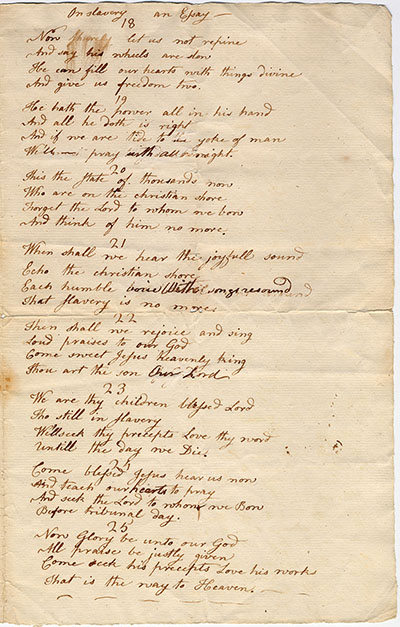 On slavery an Essay
18
Now let us not repine
And say his wheels are slow
He can fill our hearts with things divine
And give us freedom two.
19
He hath the power all in his hand
And all he doth is right
And if we are tide to yoke of man
We'll pray with all might.
20
This the State of thousands now
Who are on the christian shore
Forget the Lord to whom we bow
And think of him no more.
21
When shall we hear the joyfull sound
Echo the christian shore
Each humble voice With songs resound
That slavery is no more.
22
Then shall we rejoice and sing
Loud praises to our God
Come sweet Jesus heavenly king
Thou art the son Our Lord
23
We are thy children blessed Lord
Tho still in slavery
We'll seek thy precepts Love thy word
Untill the day we Die.
24
Come blessed Jesus hear us now
And teach our hearts to pray
And seek the Lord to whom we Bow
Before tribunal day.
25
Now Glory be unto our God
All praise be justly given
Come seek his precepts Love his works
That is the way to Heaven.